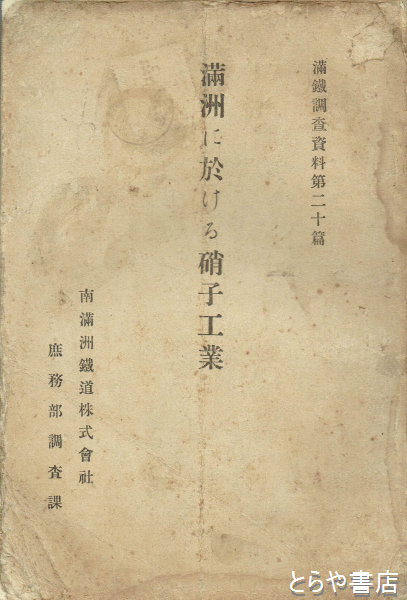 満鐵調査資料第二十篇
満洲に於ける硝子工業
南満洲鐵道株式會社
庶務部調査課
とらや書店